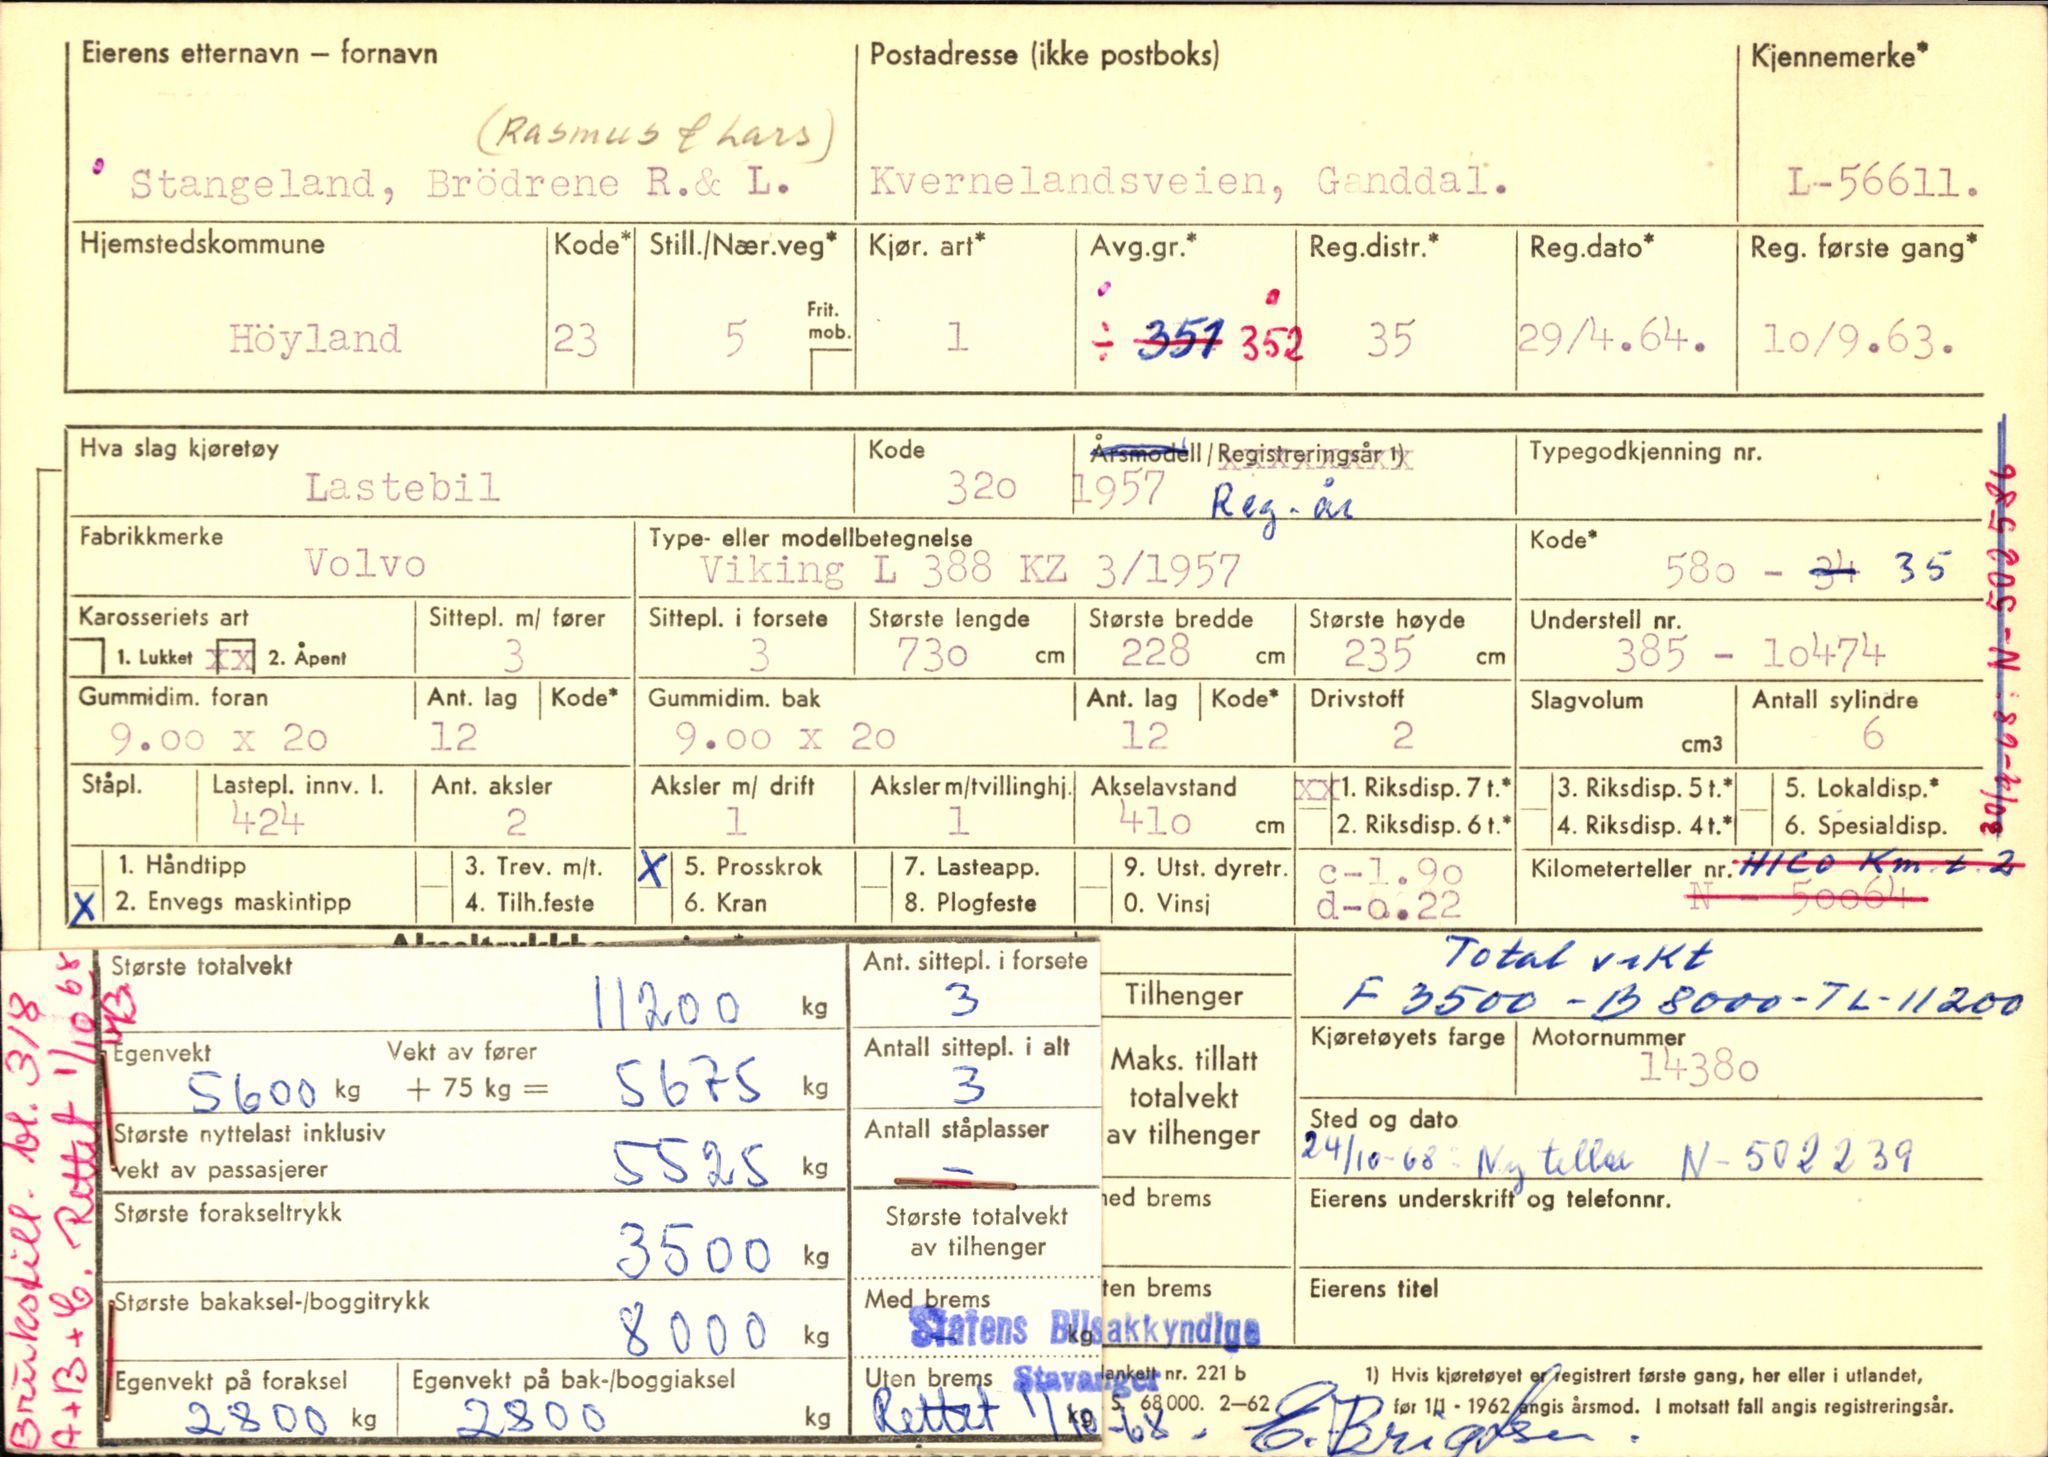 Eierens etternavn — fornavn
(Rasmus & Lars)
Stangeland, Brödrene R.& L.
Postadresse (ikke postboks)
Kvernelandsveien, Ganddal.
Kjennemerke*
L-56611.
Hjemstedskommune
Höyland
Kode*
23
Still./Nær.veg*
5
Frit.
mob.
Kjør. art*
1
Avg.gr.*
÷ 351 352
Reg.distr.*
35
Reg.dato*
29/4.64.
Reg. første gang*
10/9.63.
Hva slag kjøretøy
Lastebil
Kode
320
Årsmodell/Registreringsår 1)
1957
Reg.-år
Typegodkjenning nr.
Fabrikkmerke
Volvo
Type- eller modellbetegnelse
Viking L 388 KZ 3/1957
Kode*
580 - 34 35
Karosseriets art
1. Lukket xx 2. Åpent
Sittepl. m/ fører
3
Sittepl. i forsete
3
Største lengde
730 cm
Største bredde
228 cm
Største høyde
235 cm
Understell nr.
385 - 10474
Gummidim. foran
9.00 x 20
Ant. lag
12
Kode*
Gummidim. bak
9.00 x 20
Ant. lag
12
Kode*
Drivstoff
2
Slagvolum
cm3
Antall sylindre
6
Ståpl.
Lastepl. innv. l.
424
Ant. aksler
2
Aksler m/ drift
1
Aksler m/tvillinghj.
1
Akselavstand
410 cm
xx 1. Riksdisp. 7 t.*
2. Riksdisp. 6 t.*
3. Riksdisp. 5 t.*
4. Riksdisp. 4 t.*
5. Lokaldisp.*
6. Spesialdisp.
1. Håndtipp
X 2. Envegs maskintipp
3. Trev. m/t.
4. Tilh.feste
X 5. Prosskrok
6. Kran
7. Lasteapp.
8. Plogfeste
9. Utst. dyretr.
0. Vinsj
c-1.90
d-0.22
Kilometerteller nr. HICO Km.t. 2
N - 50064
30/7-68: N-500586
Største totalvekt
11200 kg
Ant. sittepl. i forsete
3
Egenvekt
5600 kg
Vekt av fører
+ 75 kg =
5675 kg
Antall sittepl. i alt
3
Største nyttelast inklusiv
vekt av passasjerer
5525 kg
Antall ståplasser
-
Største forakseltrykk
3500 kg
Største totalvekt
av tilhenger
Største bakaksel-/boggitrykk
8000 kg
Med brems
- kg
Egenvekt på foraksel
2800 kg
Egenvekt på bak-/boggiaksel
2800 kg
Uten brems
kg
Rettet 1/10-68.
Statens Bilsakkyndige
Stavanger
Brukstill. bl. 3/8
A+B+C. Rettet 1/10 68
Tilhenger
Maks. tillatt
totalvekt
av tilhenger
ed brems
ten brems
Total vekt
F 3500 - B 8000 - TL - 11200
Kjøretøyets farge
Motornummer
14380
Sted og dato
24/10-68: Ny teller N-502239
Eierens underskrift og telefonnr.
Eierens titel
lankett nr. 221 b
S. 68 000. 2—62
1) Hvis kjøretøyet er registrert første gang, her eller i utlandet,
før 1/1 - 1962 angis årsmod. I motsatt fall angis registreringsår.